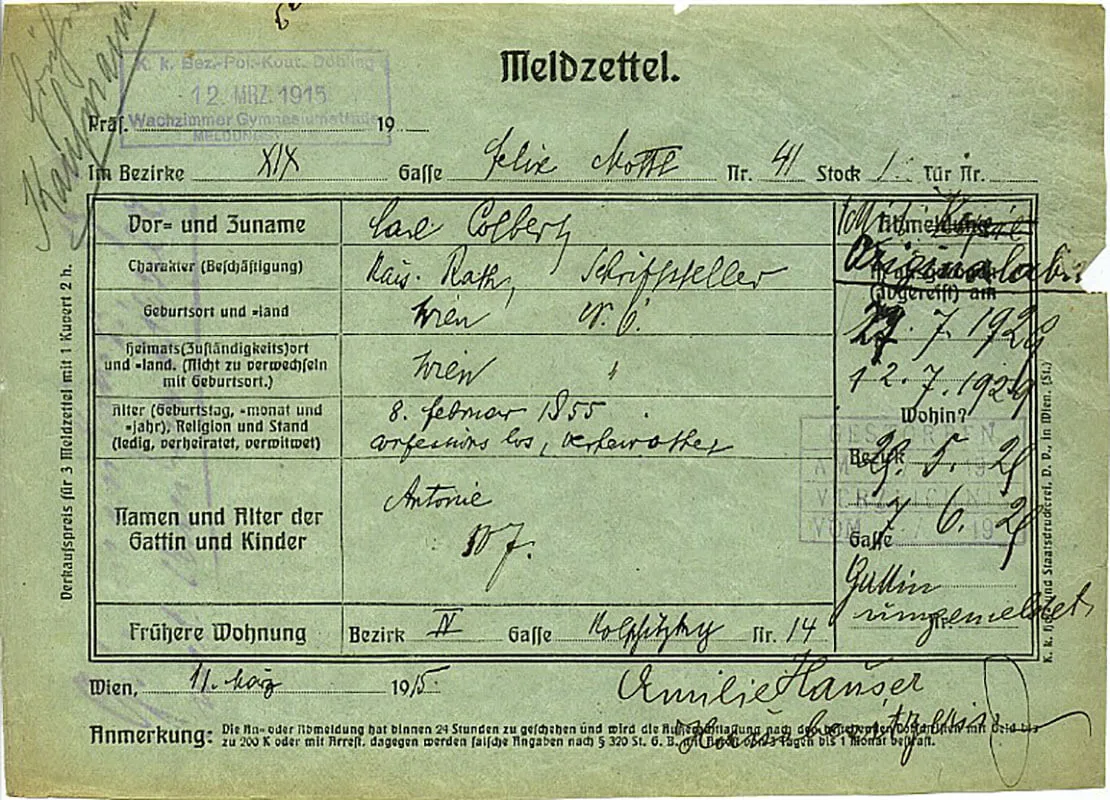 Kaufmann
Meldzettel.
K. k. Bez.-Pol.-Kout. Döbling
12. MRZ. 1915
Wachzimmer Gymnasiumstraße
MELDUNGS
Präs. 19
Im Bezirke XIX Gasse Felix Mottl Nr. 41 Stock 1. Tür Nr.
Vor- und Zuname Carl Colbert
Charakter (Beschäftigung) Kais. Rath, Schriftsteller
Geburtsort und -land Wien N. Ö.
Heimats(Zuständigkeits)ort und -land. (Nicht zu verwechseln mit Geburtsort.) Wien "
Alter (Geburtstag, -monat und -jahr), Religion und Stand (ledig, verheiratet, verwitwet) 8. Februar 1855
confessionslos, verheirathet
Namen und Alter der Gattin und Kinder Antonie
50 J.
Frühere Wohnung Bezirk IV Gasse Kolschitzky Nr. 14
Abmeldung
Original
(abgereist) am
29. 7. 1929
12. 7. 1929
Wohin?
GESTORBEN
AM 29. 5. 29
Bezirk
VERZEICHNIS
VOM 7 6. 29
Gasse
Gattin
umgemeldet
Nr.
Wien, 11. März 1915.
Emilie Hauser
Hausbesitzerin
Anmerkung: Die An- oder Abmeldung hat binnen 24 Stunden zu geschehen und wird die Außerachtlassung nach den bestehenden Vorschriften mit Geld bis
zu 200 K oder mit Arrest, dagegen werden falsche Angaben nach § 320 St. G. B. mit Arrest von 3 Tagen bis 1 Monat bestraft.
Verkaufspreis für 3 Meldzettel mit 1 Kuvert 2 h.
K. k. Hof- und Staatsdruckerei, D. V., in Wien. (St.)